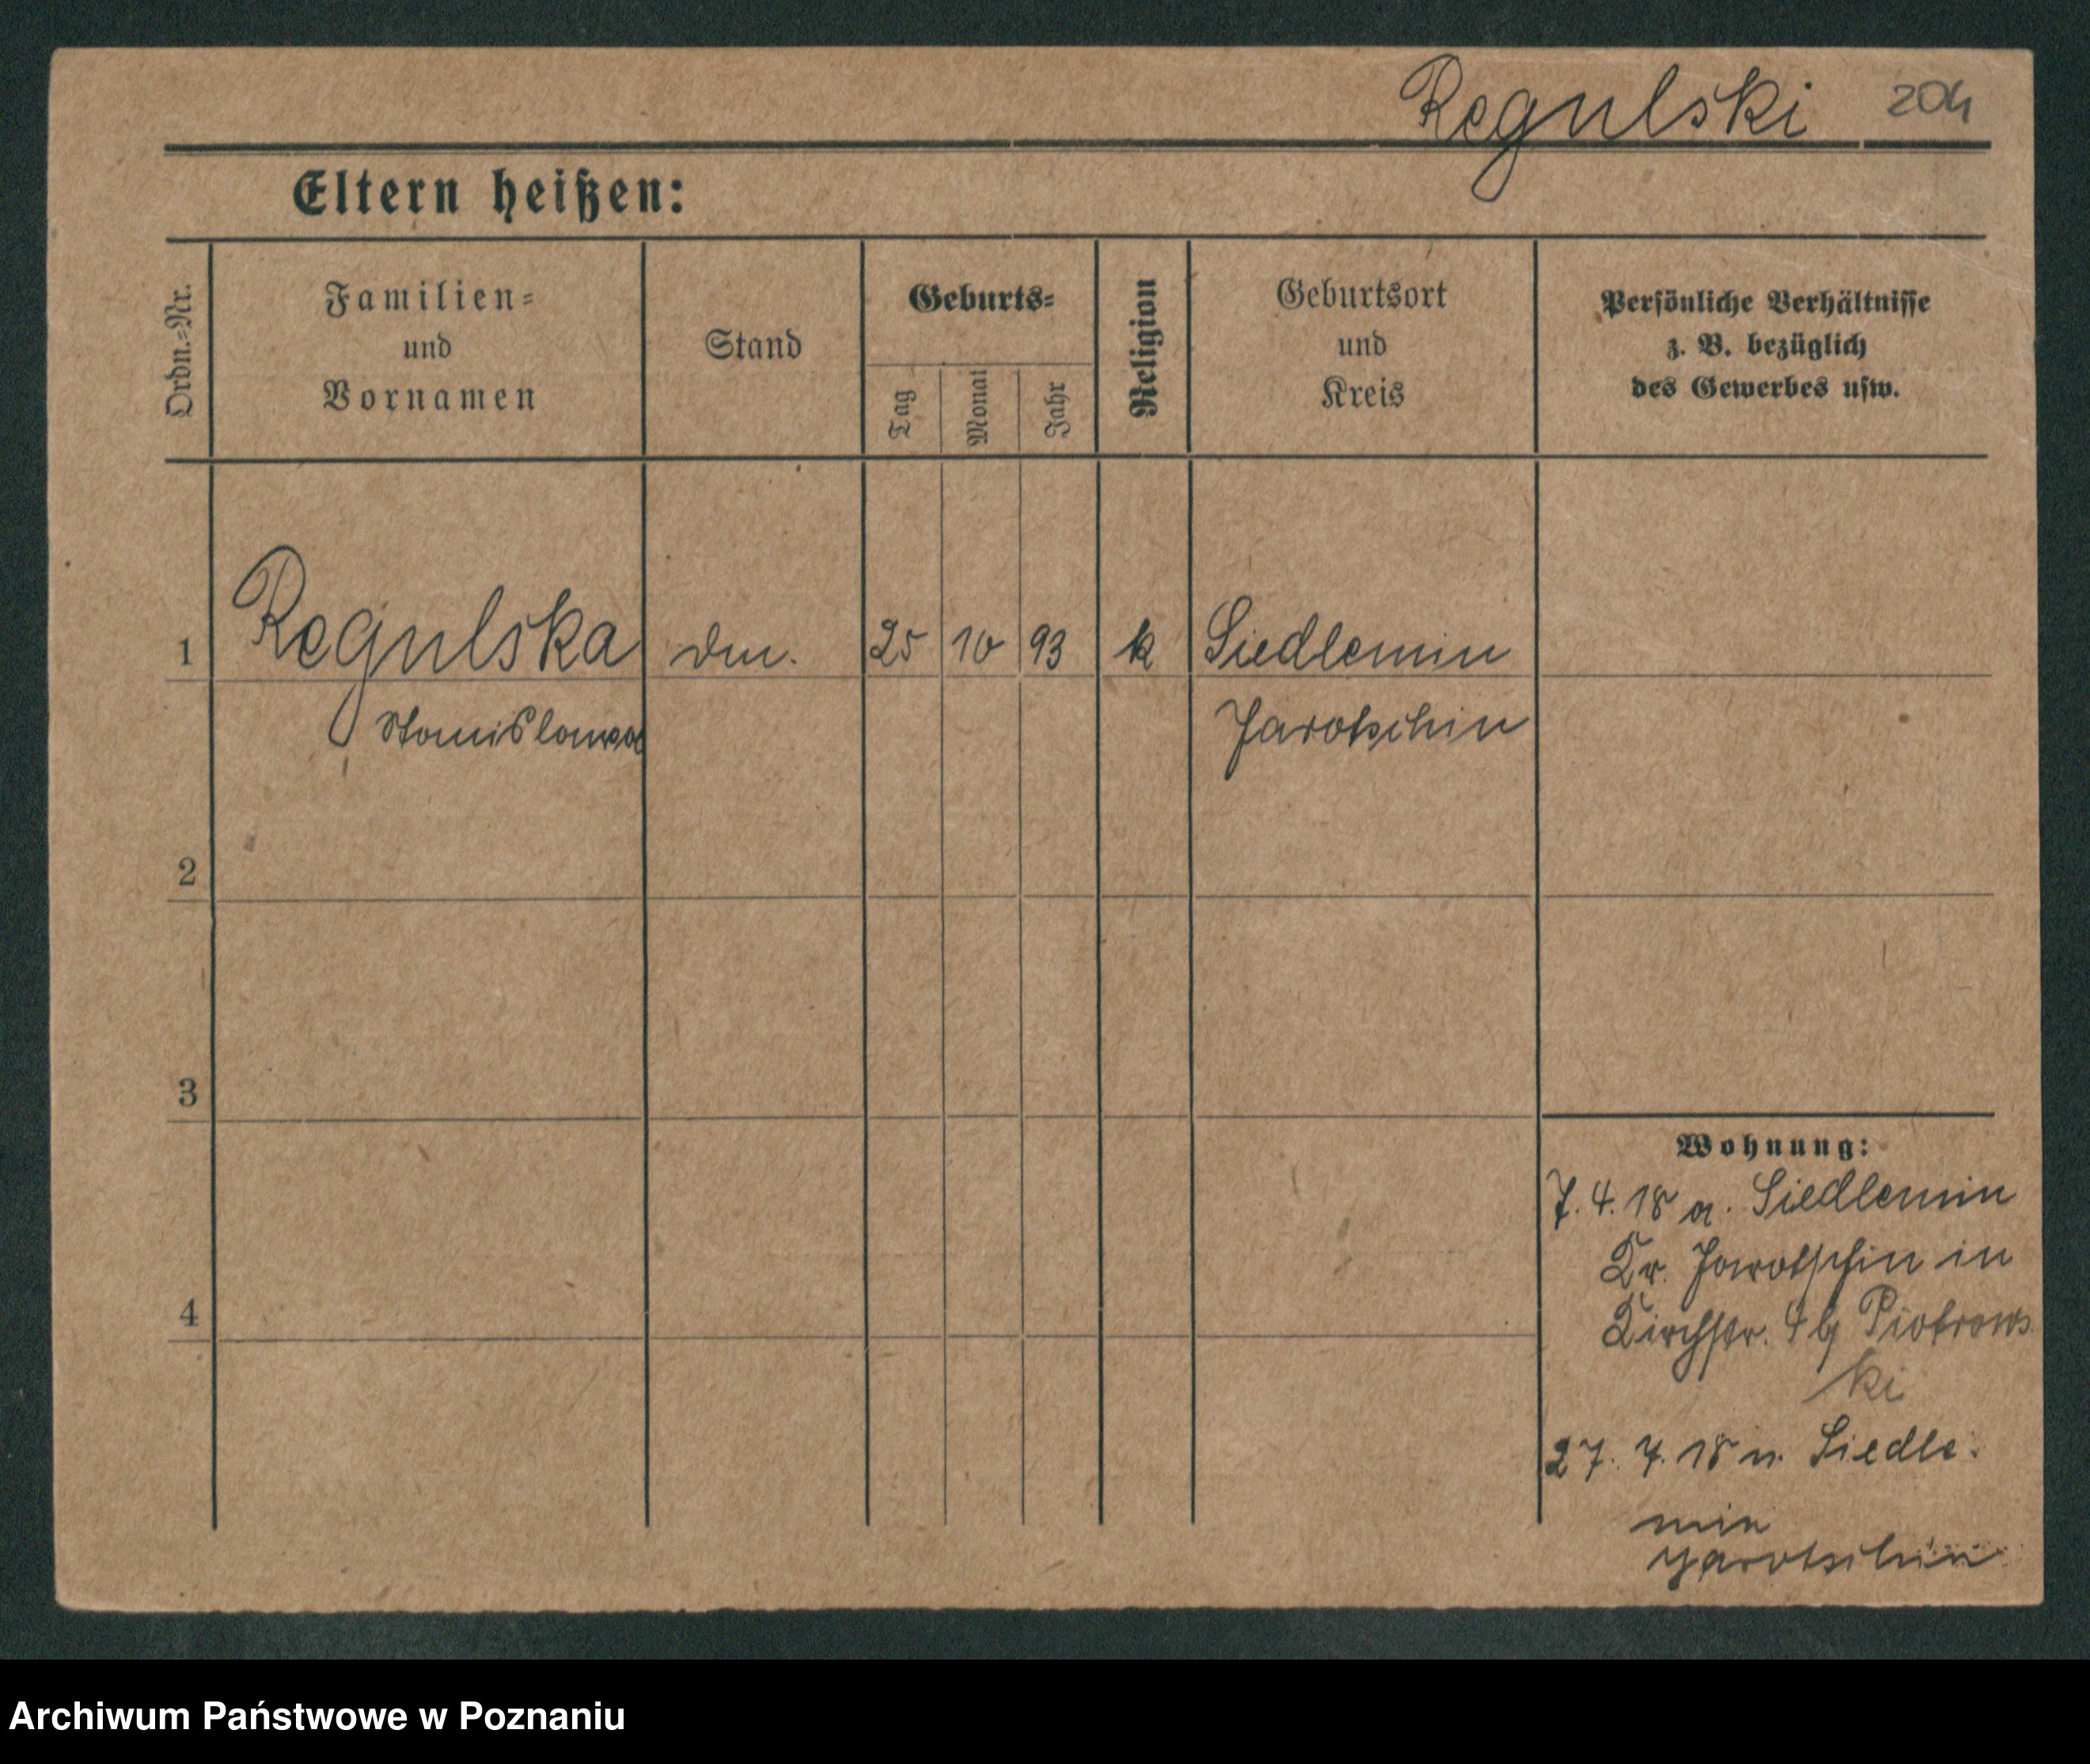 Regulski 204
Eltern heißen:
Ordn.=Nr.
Familien=
und
Vornamen
Stand
Geburts=
Tag
Monat
Jahr
Religion
Geburtsort
und
Kreis
Persönliche Verhältnisse
z. B. bezüglich
des Gewerbes usw.
1 Regulska 25 10 93 k Siedlemin
Stanislawa Jarotschin
2
3
4
Wohnung:
7. 4. 18 a. Siedlemin
Kr. Jarotschin in
Kirchstr. Piotrows
ki
27. 7. 18 n. Siedle-
min
Jarotschin
Archiwum Państwowe w Poznaniu